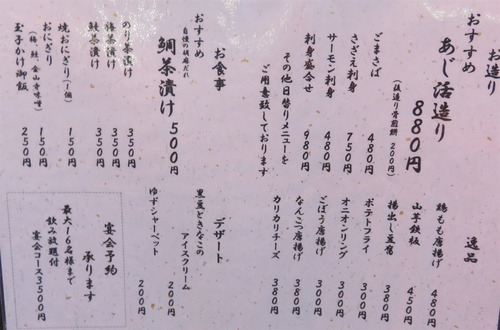 お造り
おすすめ
あじ活造り 880円
(後造り骨煎餅 200円)
ごまさば 480円
さざえ刺身 750円
サーモン刺身 480円
刺身盛合せ 980円
その他日替りメニューを
ご用意致しております
お食事
おすすめ
自慢の胡麻だれ
鯛茶漬け 500円
のり茶漬け 350円
梅茶漬け 350円
鮭茶漬け 350円
焼おにぎり(1個) 150円
おにぎり 150円
(梅、鮭、金山寺味噌)
玉子かけ御飯 250円
逸品
鶏もも唐揚げ 480円
山芋鉄板 450円
揚出し豆腐 380円
ポテトフライ 300円
オニオンリング 300円
ごぼう唐揚げ 300円
なんこつ唐揚げ 380円
カリカリチーズ 380円
デザート
黒豆ときなこの
アイスクリーム 200円
ゆずシャーベット 200円
宴会予約
承ります
最大16名様まで
飲み放題付
宴会コース3500円